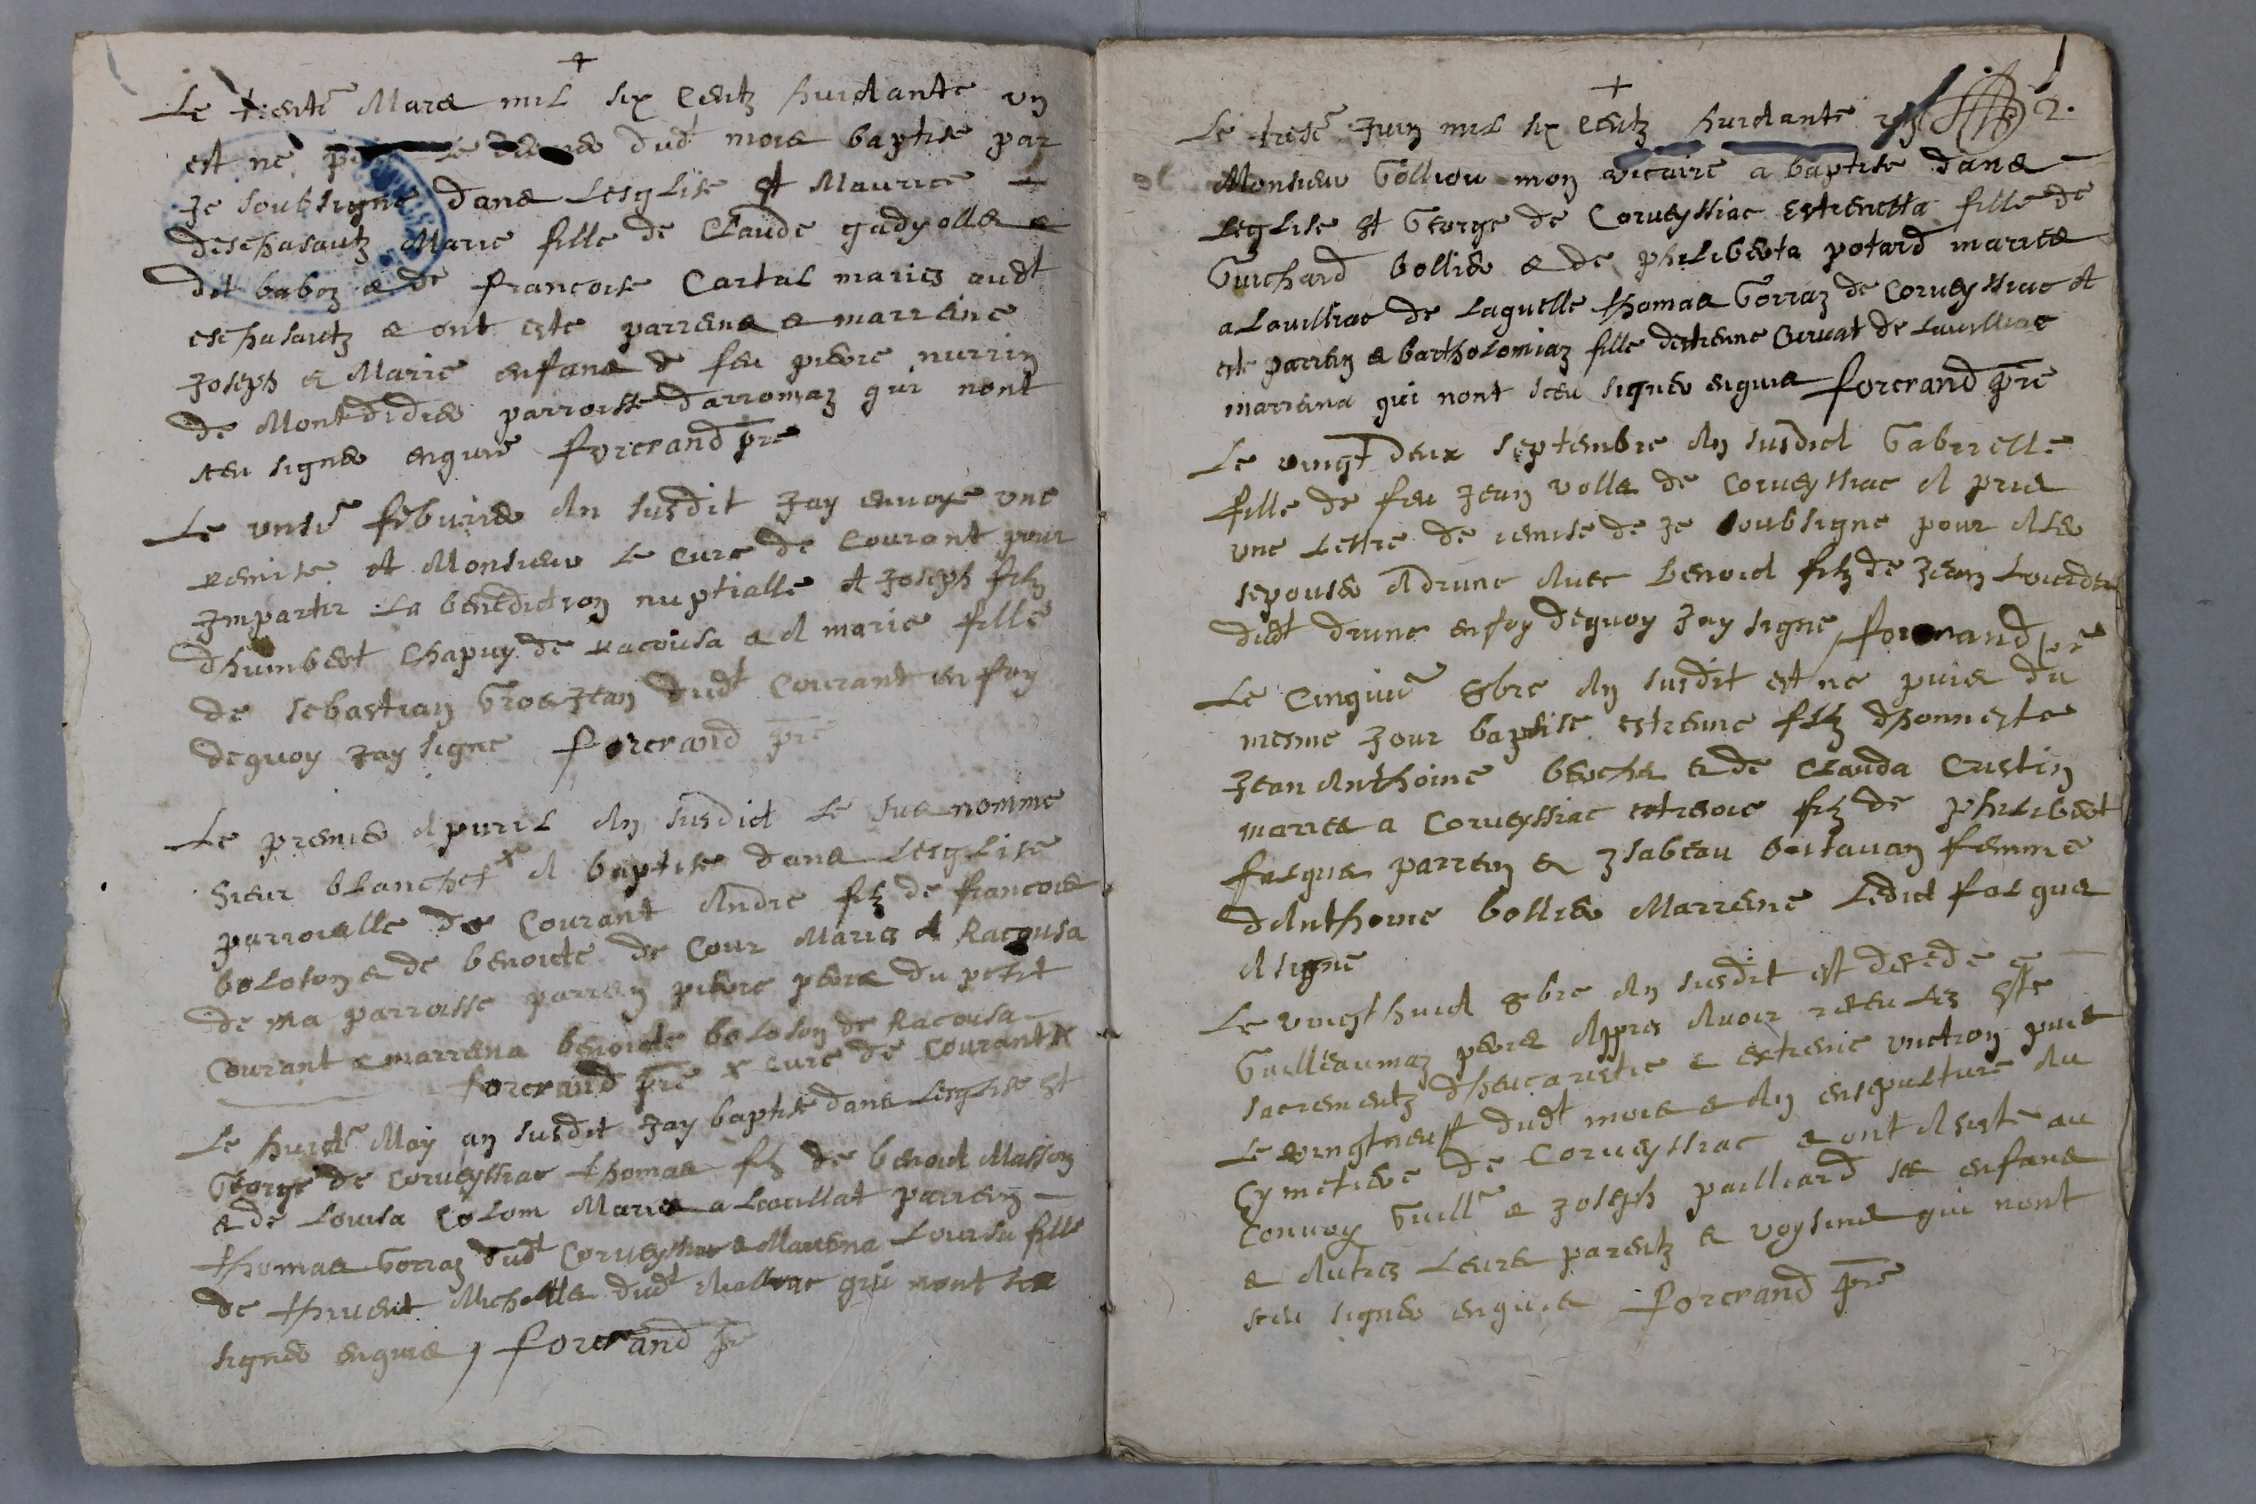 +
Le trente Mars mil six centz huictante un
est né dud mois baptise par
Je soubsigné dans Lesglise st Maurice
deschasautz Marie fille de Claude gadyolles
dit baboz & de francoise Cartal mariés aud
eschasautz & ont este parrens & marreine
Joseph & Marie enfans de feu pierre nurrin
de Montdidier parroisse darromaz qui nont
sceu signer enquis forcrand pre
Le unsie feburier An susdit Jay envoye une
remise A Monsieur Le Cure de Courant pour
Jmpartir La benediction nuptialle A Joseph filz
dhumbert Chapuy de racousa & A marie fille
de sebastian GrosJean dud Courant en foy
dequoy Jay signe forcrand pre
Le premier Apvril An susdict Le sus nomme
sieur blanchet x A baptise dans Lesglise
parroialle de Courant Andre filz de francois
boloson & de benoicte de Cour Mariés A Racousa
de ma parroisse parrein pierre peers du petit
Courant & marrena benoicte boloson de Racousa
forcrand pre x cure de Courant x
Le huicte May an susdit Jay baptise dans Lesglise st
George de Corveyssiac thomas filz de benoict Masson
& de Louisa Colom Maries a Lavillat parrein
thomas Gorraz dud Corveyssiac & Marrena Louisa fille
de Michalles dud qui nont sce
signer enquis, forcrand pre
+
2.
Le trese Juin mil six centz huictante
Monsieur Golliou mon vicaire a baptise dans
Leglise st George de Corveyssiac Estienetta fille de
Guichard bollier & de philiberta potard maries
a Lavilliac de Laquelle thomas Gorraz de Corveyssiac A
este parrein & bartholomiaz fille destienne Curvat de Lavilliac
marrena qui nont sceu signer enquis forcrand pre
Le vingt deux septembre An susdict Gabrielle
fille de feu Jean volle de Corveyssiac A pris
une Lettre de remise de Je soubsigne pour Aler
sepouser A drune Avec benoict filz de Jean
dud drune en foy dequoy Jay signe, forcrand pre
Le Cinquie 8bre An susdit est ne puis du
mesme Jour baptise estienne filz dhonneste
Jean Anthoine berche & de Clauda Cristin
maries a Corveyssiac estienne filz de philibert
falque parrein & Jsabeau boitavan femme
dAnthoine bollier Marreine Ledict falque
A signe
Le vingt huict 8bre An susdit est decede e
Guilleaumaz peers Apprés Avoir receu Les stz
sacrementz dheucaristie & extreme unction puis
Le vingtneuf dud mois & An ensepulture Au
Cymetiere de Corveyssiac & ont Asiste au
Convoy Guille & Joseph pailliard se enfans
& Autres Leurs parentz & voysins qui nont
sceu signer enquis forcrand pre